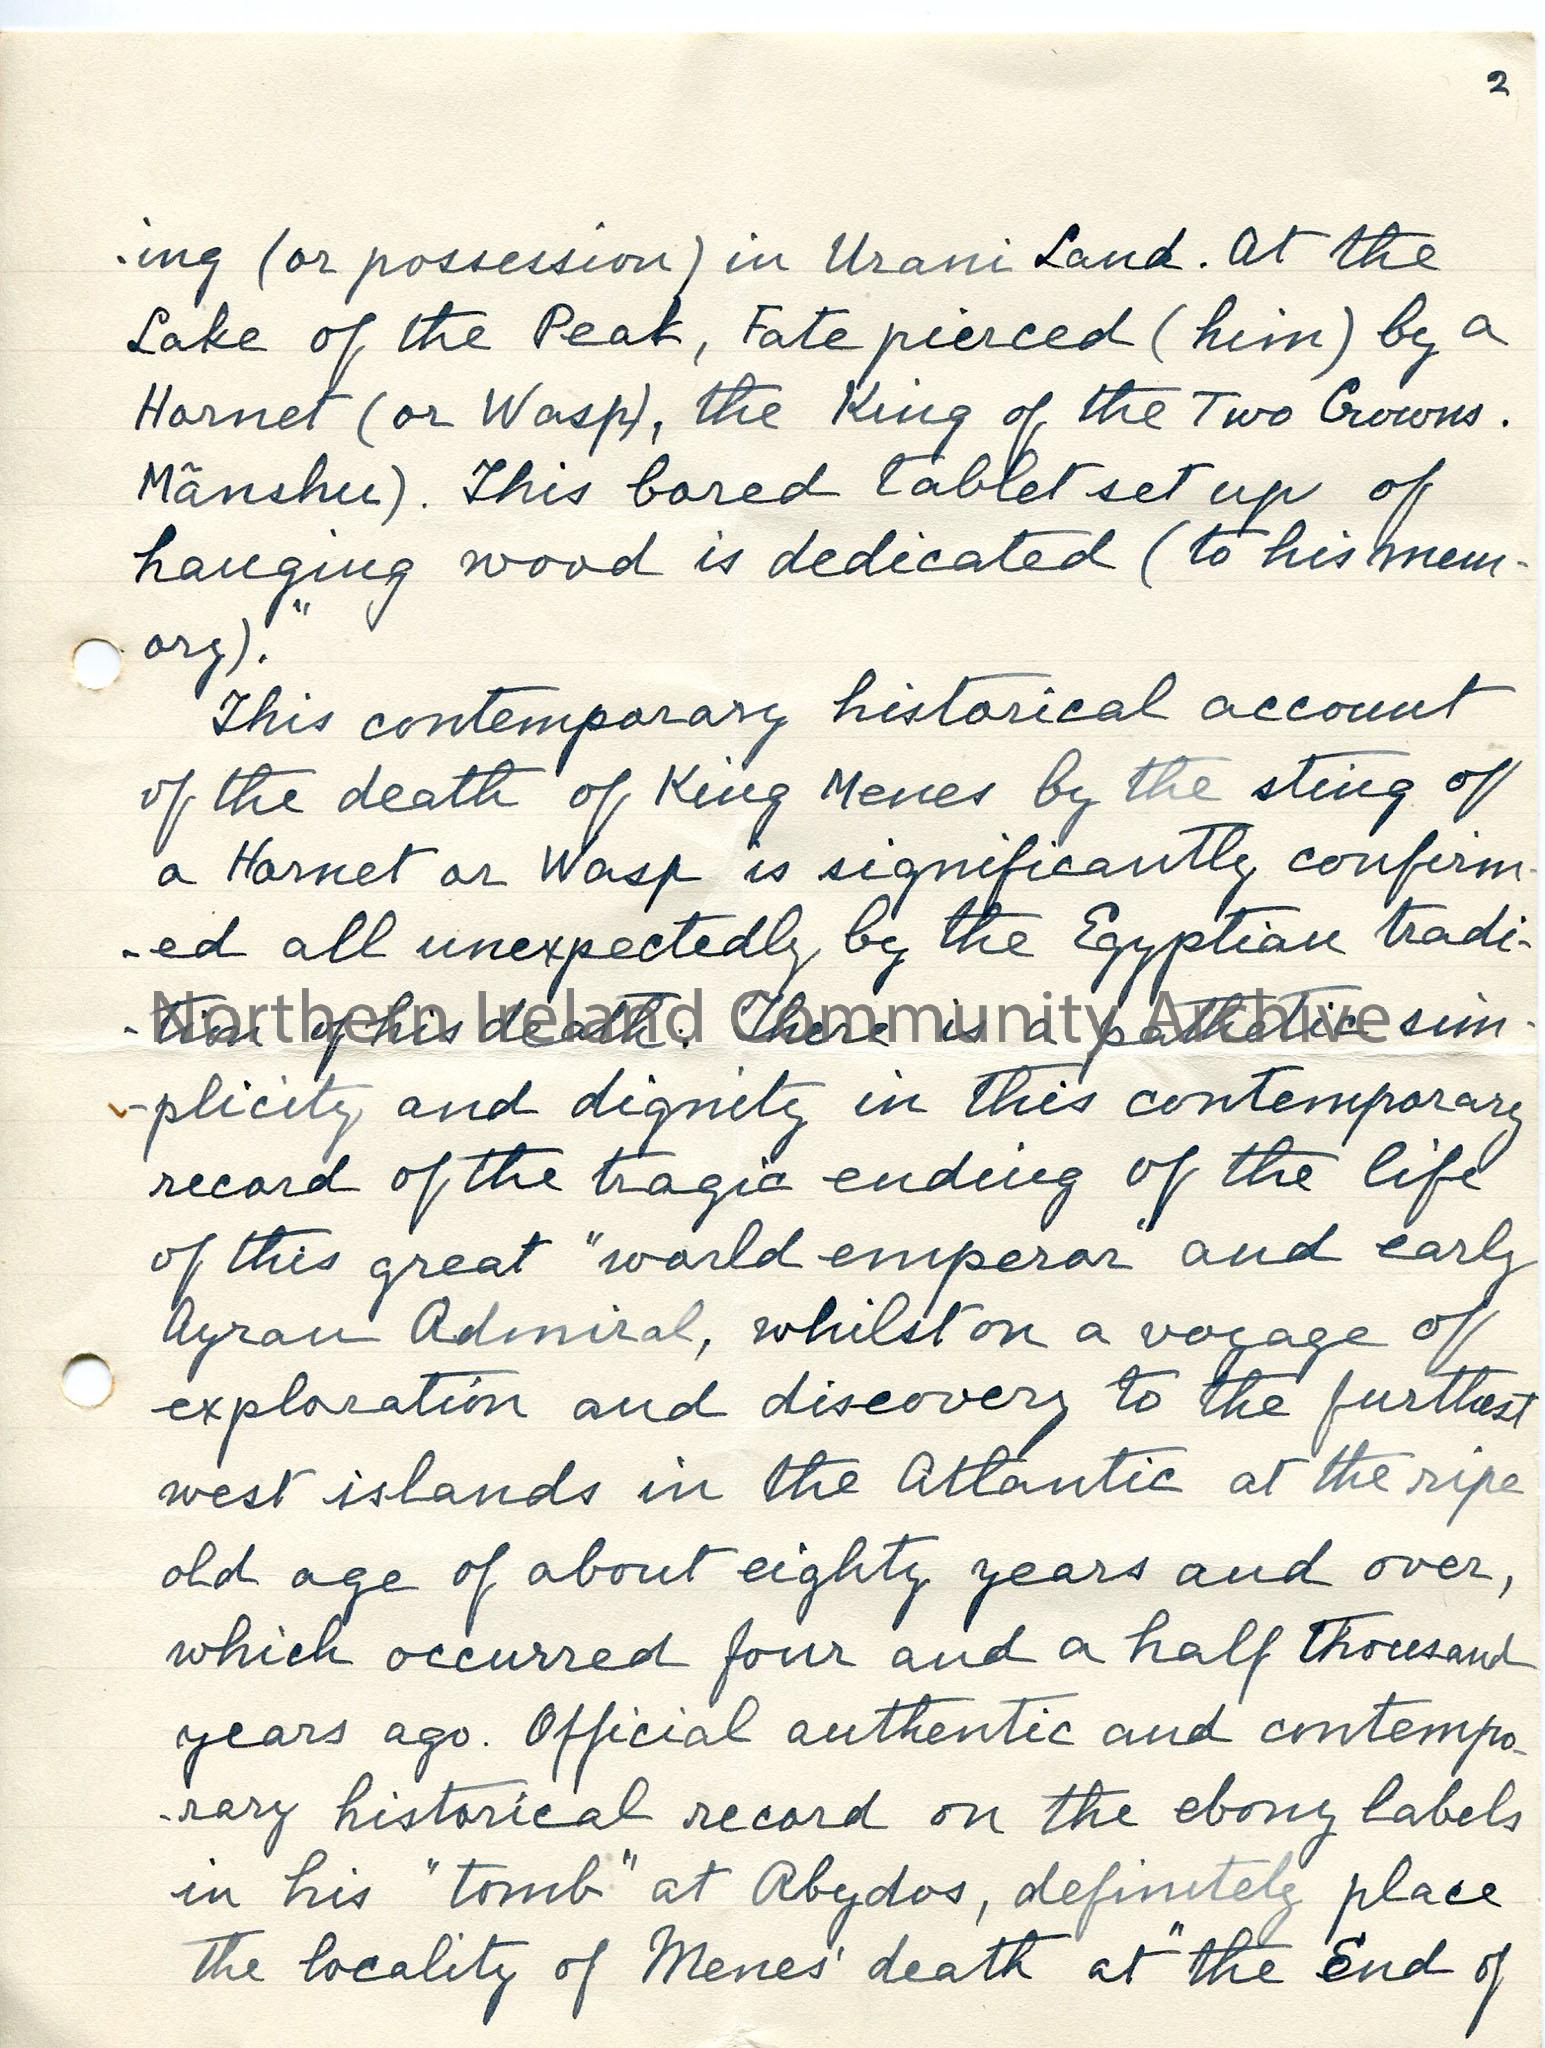 2
-ing (or possession) in Urani Land. At the
Lake of the Peak, Fate pierced (him) by a
Hornet (or Wasp), the King of the Two Crowns.
Mãnshu). This bored tablet set up of
hanging wood is dedicated (to his mem-
ory)."
This contemporary historical account
of the death of King Menes by the sting of
a Hornet or Wasp is significantly confirm-
-ed all unexpectedly by the Egyptian tradi-
-tion of his death. There is a pathetic sim-
-plicity and dignity in this contemporary
record of the tragic ending of the life
of this great "world emperor" and early
Ayran Admiral, whilst on a voyage of
exploration and discovery to the furthest
west islands in the Atlantic at the ripe
old age of about eighty years and over,
which occurred four and a half thousand
years ago. Official authentic and contempo-
-rary historical record on the ebony labels
in his "tomb" at Abydos, definitely place
the locality of Menes' death at "the End of
Northern Ireland Community Archive